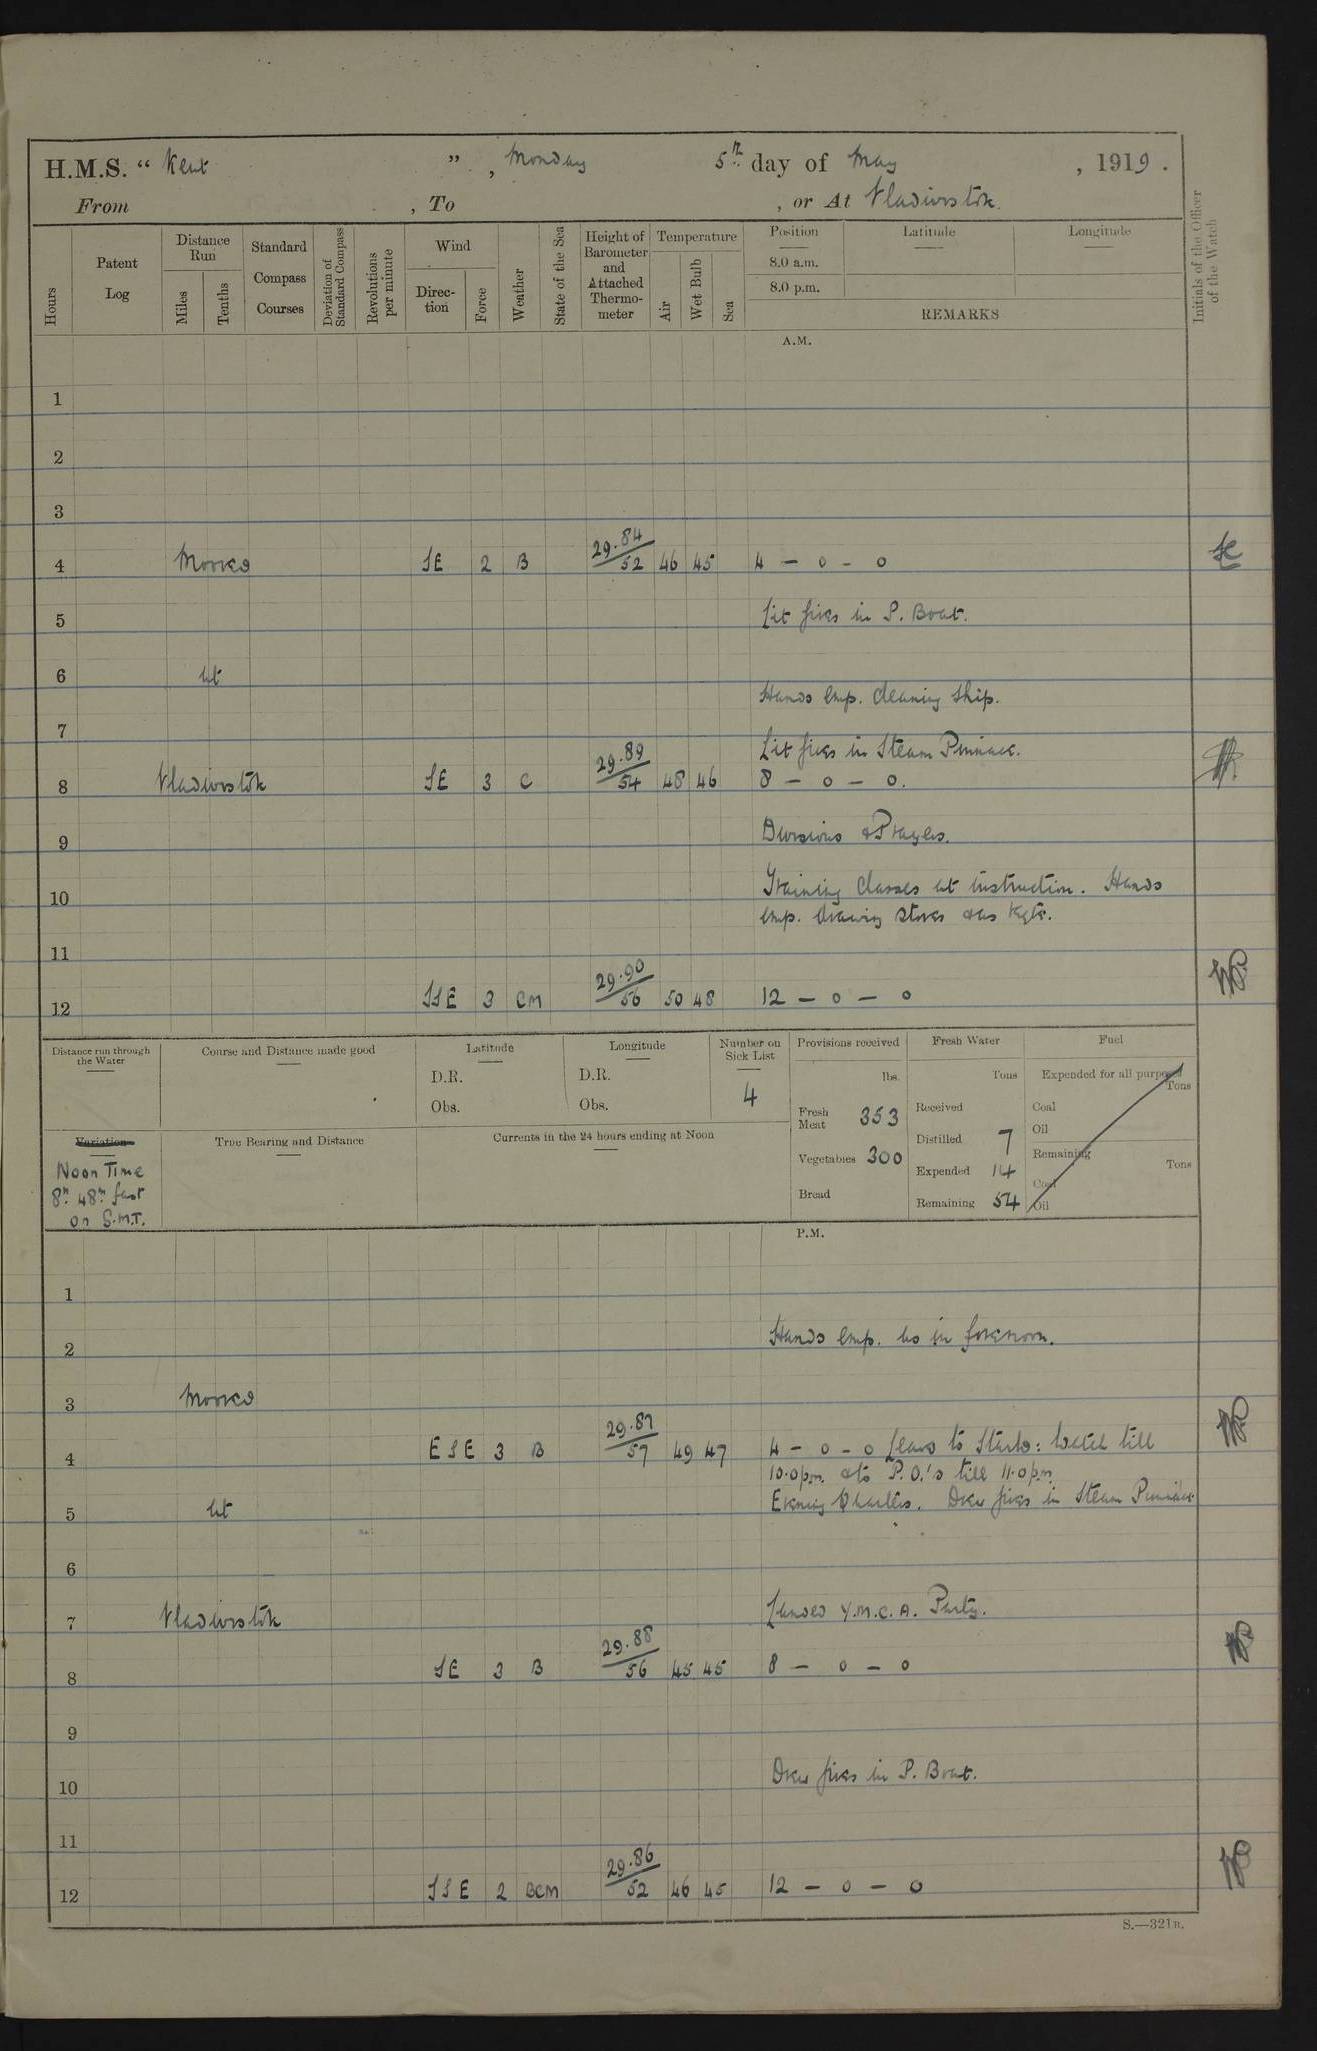 H.M.S. " Kent ", Monday 5th day of May, 1919.
From , To , or At Vladivostok.
Hours
Patent Log
Distance Run
Miles
Tenths
Standard Compass Courses
Deviation of Standard Compass
Revolutions per minute
Wind
Direction
Force
Weather
State of the Sea
Height of Barometer and Attached Thermometer
Temperature
Air
Wet Bulb
Sea
Position
8.0 a.m.
8.0 p.m.
Latitude
Longitude
REMARKS
Initials of the Officer of the Watch
A.M.
1
2
3
4 Moored SE 2 B 29.84/52 46 45 4 — 0 - 0
5 Lit fires in P. Boat.
6 at
Hands emp. cleaning ship.
7
Lit fires in Steam Pinnace.
8 Vladivostok SE 3 C 29.89/54 48 46 8 — 0 — 0.
9 Divisions & Prayers.
10 Training classes at instruction. Hands
emp. drawing stores & as reqte.
11
12 SSE 3 CM 29.90/56 50 48 12 — 0 — 0
Distance run through the Water
Course and Distance made good
Latitude
D.R.
Obs.
Longitude
D.R.
Obs.
Number on Sick List
4
Provisions received
lbs.
Fresh Meat 353
Vegetables 300
Bread
Fresh Water
Tons
Received
Distilled 7
Expended 14
Remaining 54
Fuel
Expended for all purposes
Tons
Coal
Oil
Remaining
Tons
Coal
Oil
Variation
Noon Time
8h 48m fast
on G.M.T.
True Bearing and Distance
Currents in the 24 hours ending at Noon
P.M.
1
2 Hands emp. as in forenoon.
3 Moored
4 ESE 3 B 29.87/57 49 47 4 — 0 - 0 Leave to Starbd: watch till
10.0pm. & to P.O.'s till 11.0pm
5 at Evening Quarters. Drew fires in Steam Pinnace
6
7 Vladivostok Landed Y.M.C.A. Party.
8 SE 3 B 29.88/56 45 45 8 — 0 — 0
9
10 Drew fires in P. Boat.
11
12 SSE 2 BCM 29.86/52 46 45 12 — 0 — 0
S.—321B.